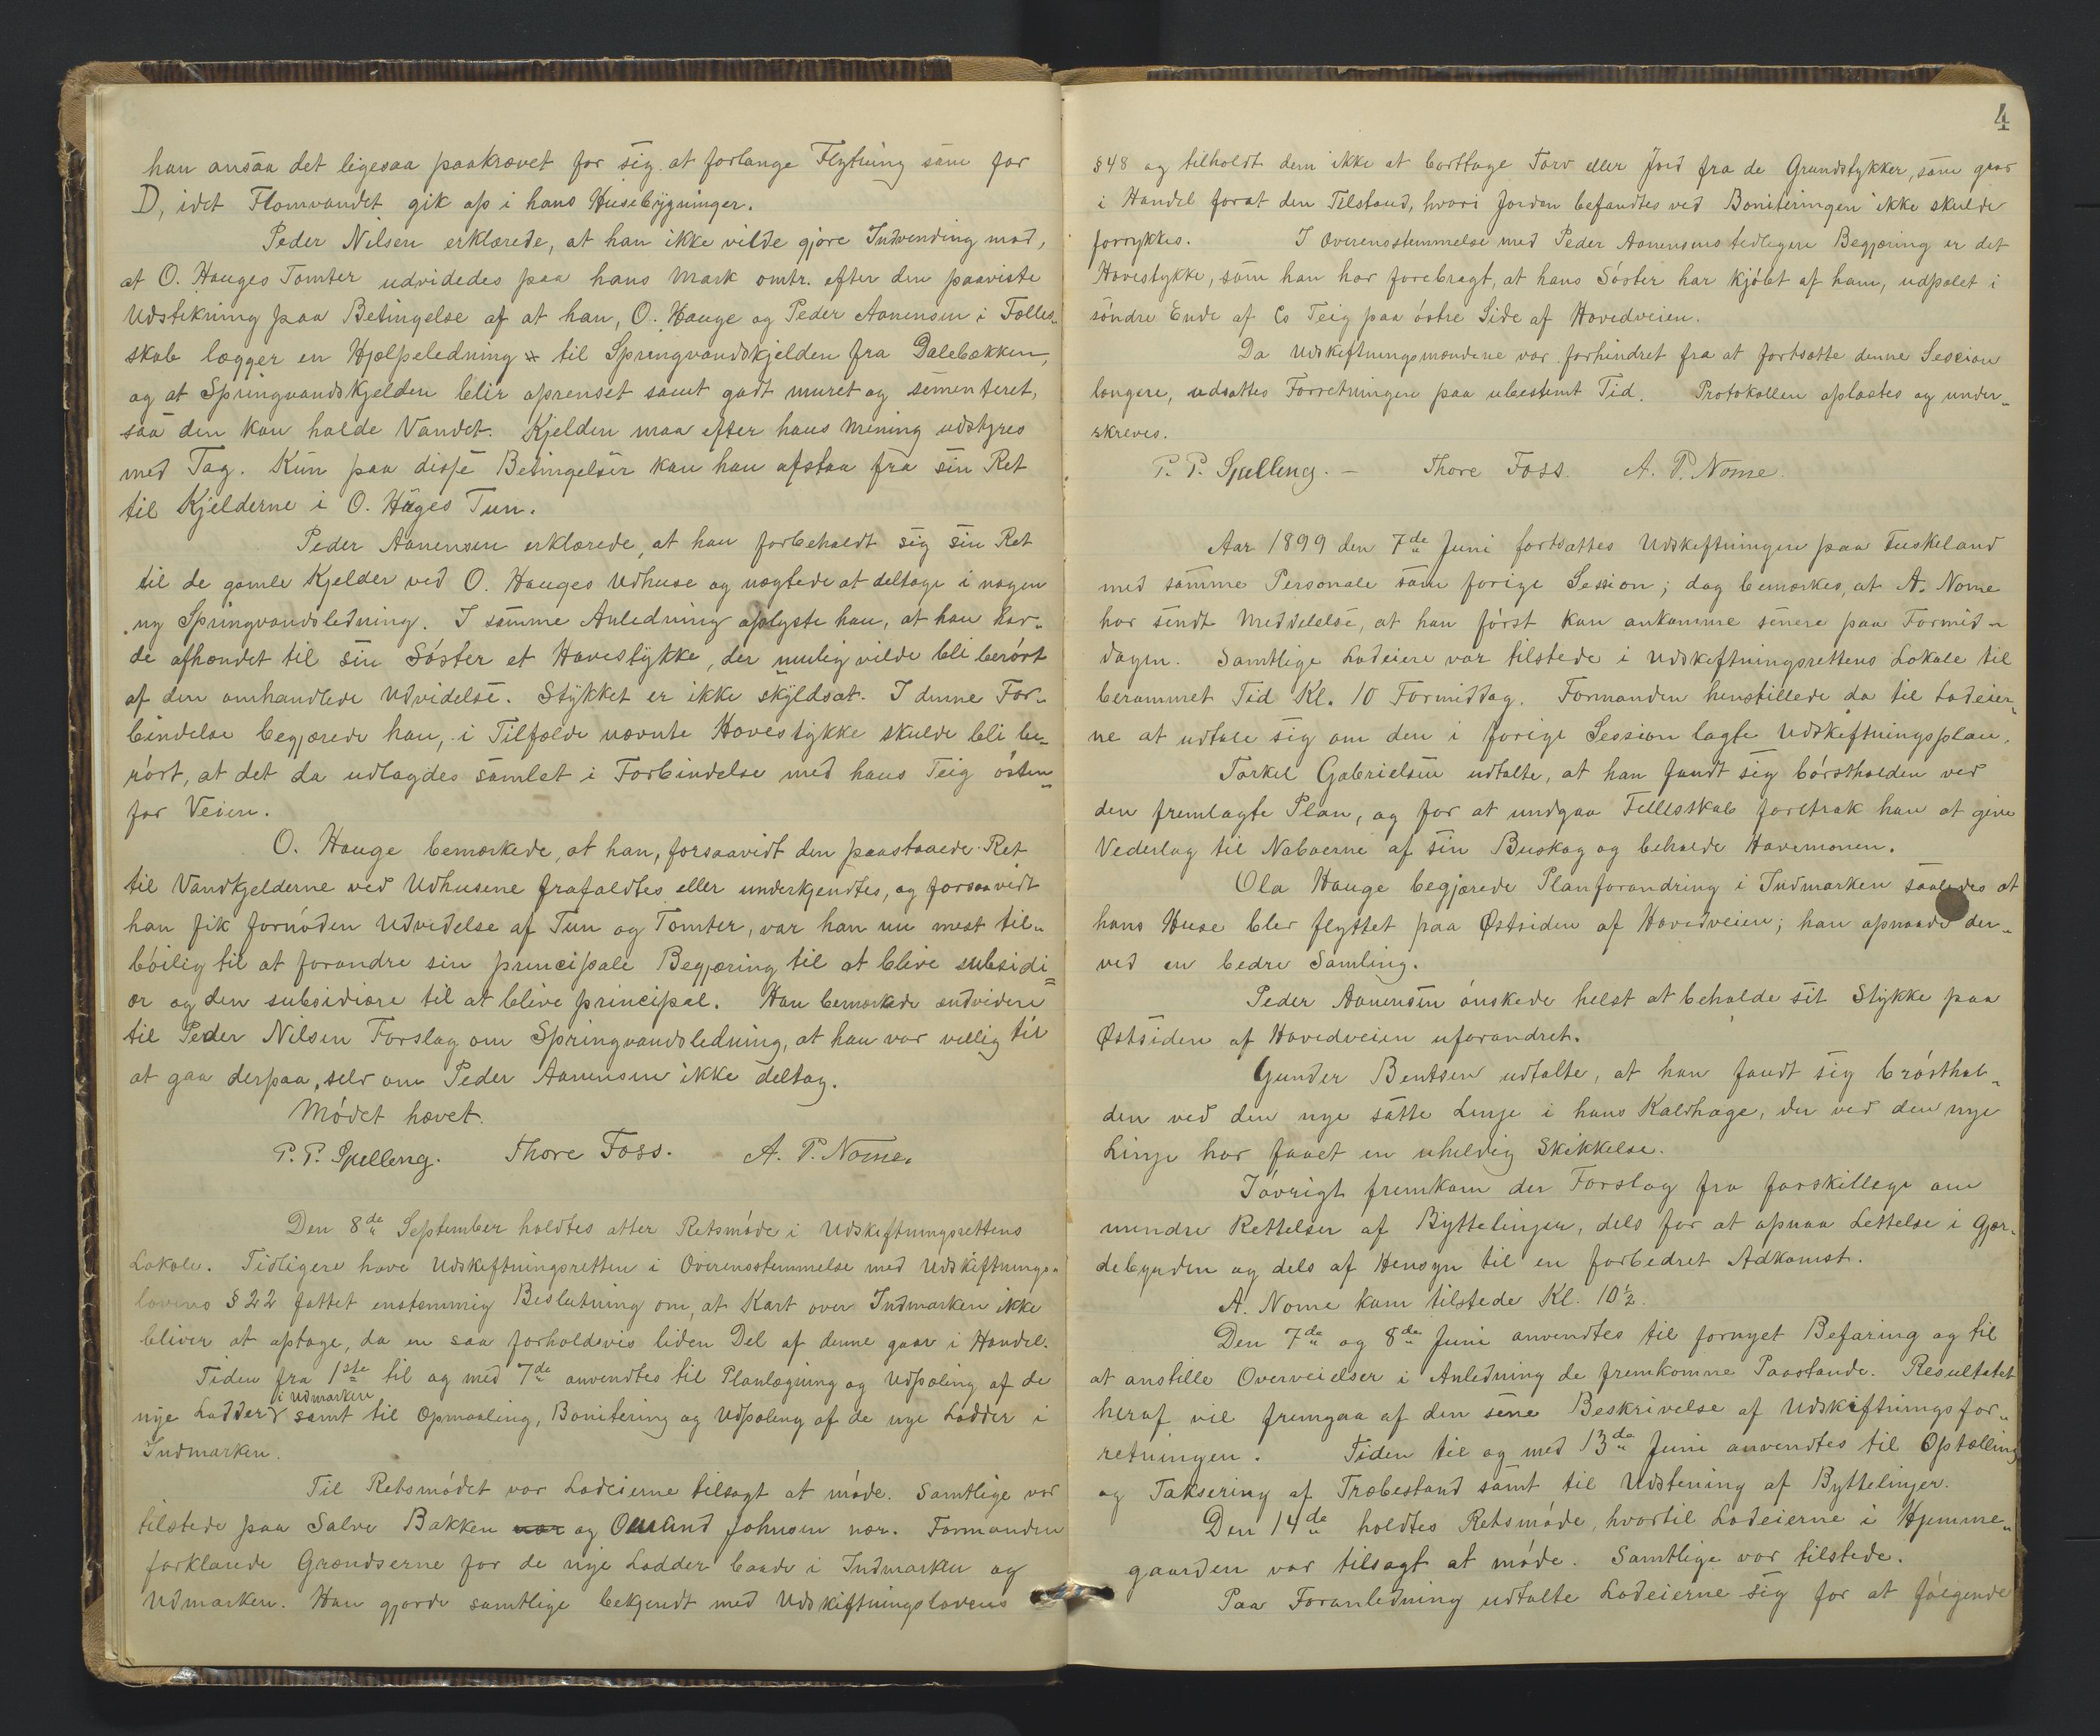 han ansaa det ligesaa paakrævet for sig at forlange Flytning som for
D, idet Flomvandet gik op i hans Husebygninger.
Peder Nilsen erklærede, at han ikke vilde gjøre Indvending mod,
at O. Hauges Tomter udvidedes paa hans Mark omtr. efter den paaviste
Udstikning paa Betingelse af at han, O. Hauge og Peder Aanensen i Fælles-
skab lægger en Hjælpeledning til Springvandskjelden fra Dalebækken,
og at Springvandskjelden blir oprenset samt godt muret og sementeret,
saa den kan holde Vandet. Kjelden maa efter hans Mening udstyres
med Tag. Kun paa disse Betingelser kan han afstaa fra sin Ret
til Kjelderne i O. Hauges Tun.
Peder Aanensen erklærede, at han forbeholdt sig sin Ret
til de gamle Kjelder ved O. Hauges Udhuse og nægtede at deltage i nogen
ny Springvandsledning. I samme Anledning oplyste han, at han har-
de afhændet til sin Søster et Havestykke, der mulig vilde bli berørt
af den omhandlede Udvidelse. Stykket er ikke skyldsat. I denne For-
bindelse begjærede han, i Tilfælde nævnte Havestykke skulde bli be-
rørt, at det da udlagdes samlet i Forbindelse med hans Teig østen-
for Veien.
O. Hauge bemærkede, at han, forsaavidt den paastaaede Ret
til Vandkjelderne ved Udhusene frafaldtes eller underkjendtes, og forsaavidt
han fik fornøden Udvidelse af Tun og Tomter, var han nu mest til-
bøilig til at forandre sin principale Begjæring til at blive subsidi-
ær og den subsidiære til at blive principal. Han bemærkede endvidere
til Peder Nilsen Forslag om Springvandsledning, at han var villig til
at gaa derpaa, selv om Peder Aanensen ikke deltog.
Mødet hævet.
P. P. Spelleng. Thore Foss. A. P. Nome.
Den 8de September holdtes atter Retsmøde i Udskiftningsrettens
Lokale. Tidligere have Udskiftningsretten i Overensstemmelse med Udskiftnings-
lovens § 22 fattet enstemmig Beslutning om, at Kart over Indmarken ikke
bliver at optage, da en saa forholdsvis liden Del af denne gaar i Handel.
Tiden fra 1ste til og med 7de anvendtes til Planlægning og Udpæling af de
i Udmarken
nye Lodder samt til Opmaaling, Bonitering og Udpæling af de nye Lodder i
Indmarken.
Til Retsmødet var Lodeierne tilsagt at møde. Samtlige var
tilstede paa Salve Bakken nær og Omund Johnsen nær. Formanden
forklarede Grændserne for de nye Lodder baade i Indmarken og
Udmarken. Han gjorde samtlige bekjendt med Udskiftningslovens
4
§ 48 og tilholdt dem ikke at borttage Torv eller Jord fra de Grundstykker, som gaar
i Handel forat den Tilstand, hvori Jorden befandtes ved Boniteringen ikke skulde
forrykkes. I Overensstemmelse med Peder Aanensens tidligere Begjæring er det
Havestykke, som han har forebragt, at hans Søster har kjøbt af ham, udpælet i
søndre Ende af Cs Teig paa østre Side af Hovedveien.
Da Udskiftningsmændene var forhindret fra at fortsætte denne Session
længere, udsattes Forretningen paa ubestemt Tid. Protokollen oplæstes og under-
skreves.
P. P. Spelleng. – Thore Foss. A. P. Nome.
Aar 1899 den 7de Juni fortsattes Udskiftningen paa Tuskeland
med samme Personale som forige Session; dog bemærkes, at A. Nome
har sendt Meddelelse, at han først kan ankomme senere paa Formid-
dagen. Samtlige Lodeiere var tilstede i Udskiftningsrettens Lokale til
berammet Tid Kl. 10 Formiddag. Formanden henstillede da til Lodeier-
ne at udtale sig om den i forige Session lagte Udskiftningsplan.
Torkel Gabrielsen udtalte, at han fandt sig børstholden ved
den fremlagte Plan, og for at undgaa Fællesskab foretrak han at give
Vederlag til Naboerne af sin Buskog og beholde Havemonen.
Ola Hauge begjærede Planforandring i Indmarken saaledes at
hans Huse blev flyttet paa Østsiden af Hovedveien; han opnaade der-
ved en bedre Samling.
Peder Aanensen ønskede helst at beholde sit Stykke paa
Østsiden af Hovedveien uforandret.
Gunder Bentsen udtalte, at han fandt sig brøsthol-
den ved den nye satte Linje i hans Kaldhage, der ved den nye
Linje har faaet en uheldig Skikkelse.
Iøvrigt fremkom der Forslag fra forskillege om
mindre Rettelser af Byttelinjer, dels for at opnaa Lettelse i Gjær-
debyrden og dels af Hensyn til en forbedret Adkomst.
A. Nome kom tilstede Kl. 10½.
Den 7de og 8de Juni anvendtes til fornyet Befaring og til
at anstille Overveielser i Anledning de fremkomne Paastande. Resultatet
heraf vil fremgaa af den sene Beskrivelse af Udskiftningsfor-
retningen. Tiden til og med 13de Juni anvendtes til Optælling
og Taksering af Træbestand samt til Udstening af Byttelinjer.
Den 14de holdtes Retsmøde, hvortil Lodeierne i Hjemme-
gaarden var tilsagt at møde. Samtlige var tilstede.
Paa Foranledning udtalte Lodeierne sig for at følgende